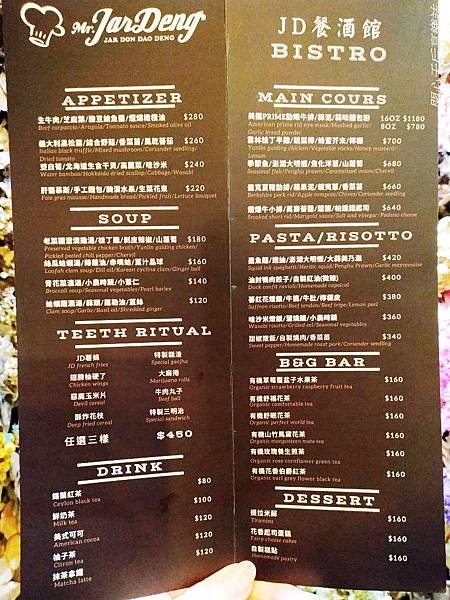 Mr. JarDeng
JAR DON DAO DENG
APPETIZER
$280
Beef carpaccio/Arugula/Tomato sauce/Smoked olive oil
義大利黑松露/綜合野菇/香菜苗/風乾蕃茄 $260
Italian black truffle/Mixed mushroom/Coriander seedling/
Dried tomato
$240
Water bamboo/Hokkaido dried scallop/Cabbage/Wasabi
肝醬慕斯/手工麵包/醃漬水果/生菜花束 $220
Foie gras mousse/Handmade bread/Pickled fruit/Lettuce bouquet
SOUP
$180
Preserved vegetable chicken broth/Yunlin guiding chicken/
Pickled peeled chili pepper/Chervil
$160
Loofah clam soup/Dill oil/Korean cyclina clam/Ginger ball
青花菜濃湯/小農時蔬/小薏仁 $140
Broccoli soup/Seasonal vegetables/Pearl barley
$120
Clam soup/Garlic/Basil oil/Shredded ginger
TEETH RITUAL
JD薯條
JD french fries
翅膀怕硬了
Chicken wings
惡魔玉米片
Devil cereal
酥炸花枝
Deep fried cereal
特製貢渣
Special gaojha
大麻捲
Marijuana rolls
牛肉丸子
Beef ball
特製三明治
Special sandwich
任選三樣 $450
DRINK
錫蘭紅茶 $80
Ceylon black tea
鮮奶茶 $100
Milk tea
美式可可 $120
American cocoa
柚子茶 $120
Citron tea
抹茶拿鐵 $120
Matcha latte
JD餐酒館
BISTRO
MAIN COURS
美國PRIME肋眼牛排/蒜泥/蒜味麵包粉 16OZ $1180
American prime rid eye steak/Mashed garlic/ 8OZ $780
Garlic bread powder
雲林桂丁半雞/蔬菜棒/蜂蜜芥末/檸檬 $700
Yunlin guiding chicken/Vegetable sticks/honey mustard/
Lemon
季節魚/澎湖大明蝦/魚化洋蔥/山蘿蔔 $680
Seasonal fish/Penghu prawn/Caramelized onion/Chervil
$660
Berkshire pork rid/Apple compote/Chives/Coriander seedling
$640
Smoked short rid/Marigold sauce/Salt and vinegar/Padano cheese
PASTA/RISOTTO
墨魚麵/透抽/澎湖大明蝦/大蒜美乃滋 $420
Squid ink spaghetti/Neritic squid/Penghu Prawn/Garlic mayonnaise
油封鴨肉餃子/自製紅油(微辣) $400
Duck confit ravioli/Homemade capsicol
番紅花燉飯/牛腱/牛肚/檸檬皮 $380
Saffron risotto/Beef tendon/Beef tripe/Lemon peel
$360
Wasabi risotto/Grilled eel/Seasonal vegetables
甜椒燉飯/自製燒肉/香菜苗 $340
Sweet pepper/Homemade roast/Coriander seedling
B&G BAR
有機草莓覆盆子水果茶 $160
Organic strawberry raspberry fruit tea
有機舒福花茶 $160
Organic comfortable tea
有機舒眠花茶 $160
Organic perfect world tea
有機山竹馬黛花茶 $160
Organic mangosteen mate tea
有機玫瑰養生煎茶 $160
Organic rose cornflower green tea
有機花香伯爵紅茶 $160
Organic earl grey flower black tea
DESSERT
提拉米蘇 $160
Tiramisu
花香起司蛋糕 $160
Fairy cheese cakes
自製糕點 $160
Homemade pastry